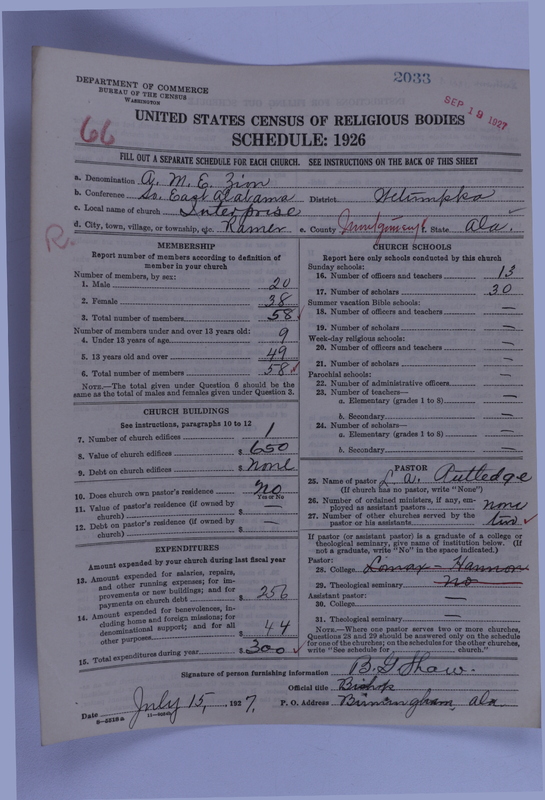 2033
DEPARTMENT OF COMMERCE
BUREAU OF THE CENSUS
WASHINGTON
SEP 19 1927
66
UNITED STATES CENSUS OF RELIGIOUS BODIES
SCHEDULE: 1926
FILL OUT A SEPARATE SCHEDULE FOR EACH CHURCH. SEE INSTRUCTIONS ON THE BACK OF THIS SHEET
a. Denomination A. M. E. Zion
b. Conference So. East Alabama District Wetumpka
c. Local name of church Interprise
d. City, town, village, or township, etc. Ramer e. County Montgomery State Ala.
R.
MEMBERSHIP
Report number of members according to definition of member in your church
Number of members, by sex:
1. Male 20
2. Female 38
3. Total number of members 58
Number of members under and over 13 years old:
4. Under 13 years of age 9
5. 13 years old and over 49
6. Total number of members 58
NOTE.—The total given under Question 6 should be the same as the total of males and females given under Question 3.
CHURCH BUILDINGS
See instructions, paragraphs 10 to 12
7. Number of church edifices 1
8. Value of church edifices $ 650
9. Debt on church edifices $ None
10. Does church own pastor's residence No
Yes or No
11. Value of pastor's residence (if owned by church) $ —
12. Debt on pastor's residence (if owned by church) $ —
EXPENDITURES
Amount expended by your church during last fiscal year
13. Amount expended for salaries, repairs, and other running expenses; for improvements or new buildings; and for payments on church debt $ 256
14. Amount expended for benevolences, including home and foreign missions; for denominational support; and for all other purposes $ 44
15. Total expenditures during year $ 300
CHURCH SCHOOLS
Report here only schools conducted by this church
Sunday schools:
16. Number of officers and teachers 13
17. Number of scholars 30
Summer vacation Bible schools:
18. Number of officers and teachers —
19. Number of scholars —
Week-day religious schools:
20. Number of officers and teachers —
21. Number of scholars —
Parochial schools:
22. Number of administrative officers —
23. Number of teachers—
a. Elementary (grades 1 to 8) —
b. Secondary —
24. Number of scholars—
a. Elementary (grades 1 to 8) —
b. Secondary —
PASTOR
25. Name of pastor L. A. Rutledge
(If church has no pastor, write "None")
26. Number of ordained ministers, if any, employed as assistant pastors none
27. Number of other churches served by the pastor or his assistants two
If pastor (or assistant pastor) is a graduate of a college or theological seminary, give name of institution below. (If not a graduate, write "No" in the space indicated.)
Pastor:
28. College Lomax - Hannon
29. Theological seminary No
Assistant pastor:
30. College —
31. Theological seminary —
NOTE.—Where one pastor serves two or more churches, Questions 28 and 29 should be answered only on the schedule for one of the churches; on the schedules for the other churches, write "See schedule for church."
Signature of person furnishing information B. G. Shaw.
Official title Bishop
Date July 15, 1927. P. O. Address Birmingham, Ala.